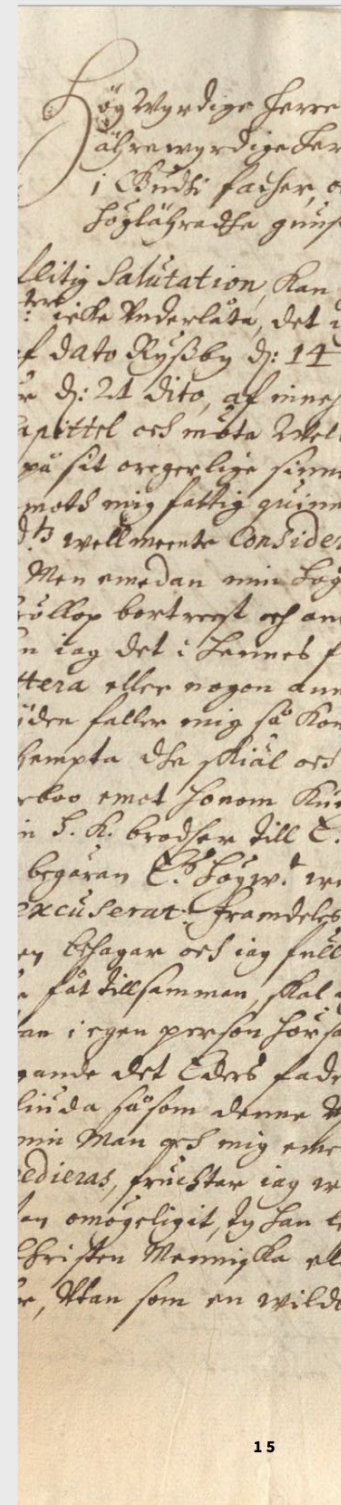 Hög Wyrdige Herre
ährewyrdige Her
i Gudh fadher, o
höglährdhe gunst
flitig Salutation, Kan
icke Underlåta, det i
af dato Ryßby dj: 14
dj: 21 dito, af inneh
apittel och måta Wel
på sit oregerlige sinne
moth mig fattig quinn
wellmeente Consider
Men emedan min hög
röllop bortreest och an
iag det i hennes f
ttera eller nogon ann
iden faller mig så kon
hempta dhe skiäl och
rboo emot honom Kun
h. K. brodher till E.
begäran E.s högw.t
excuserat. framdeles
behagar och iag full
fåt tillsamman, skal
an i egen person hörsa
gande det Eders fade
liuda såsom denne
min Man och mig eme
edieras, fruchtar iag
an omögeligit, ty han
Christen Menniska el
Utan som en wild
15